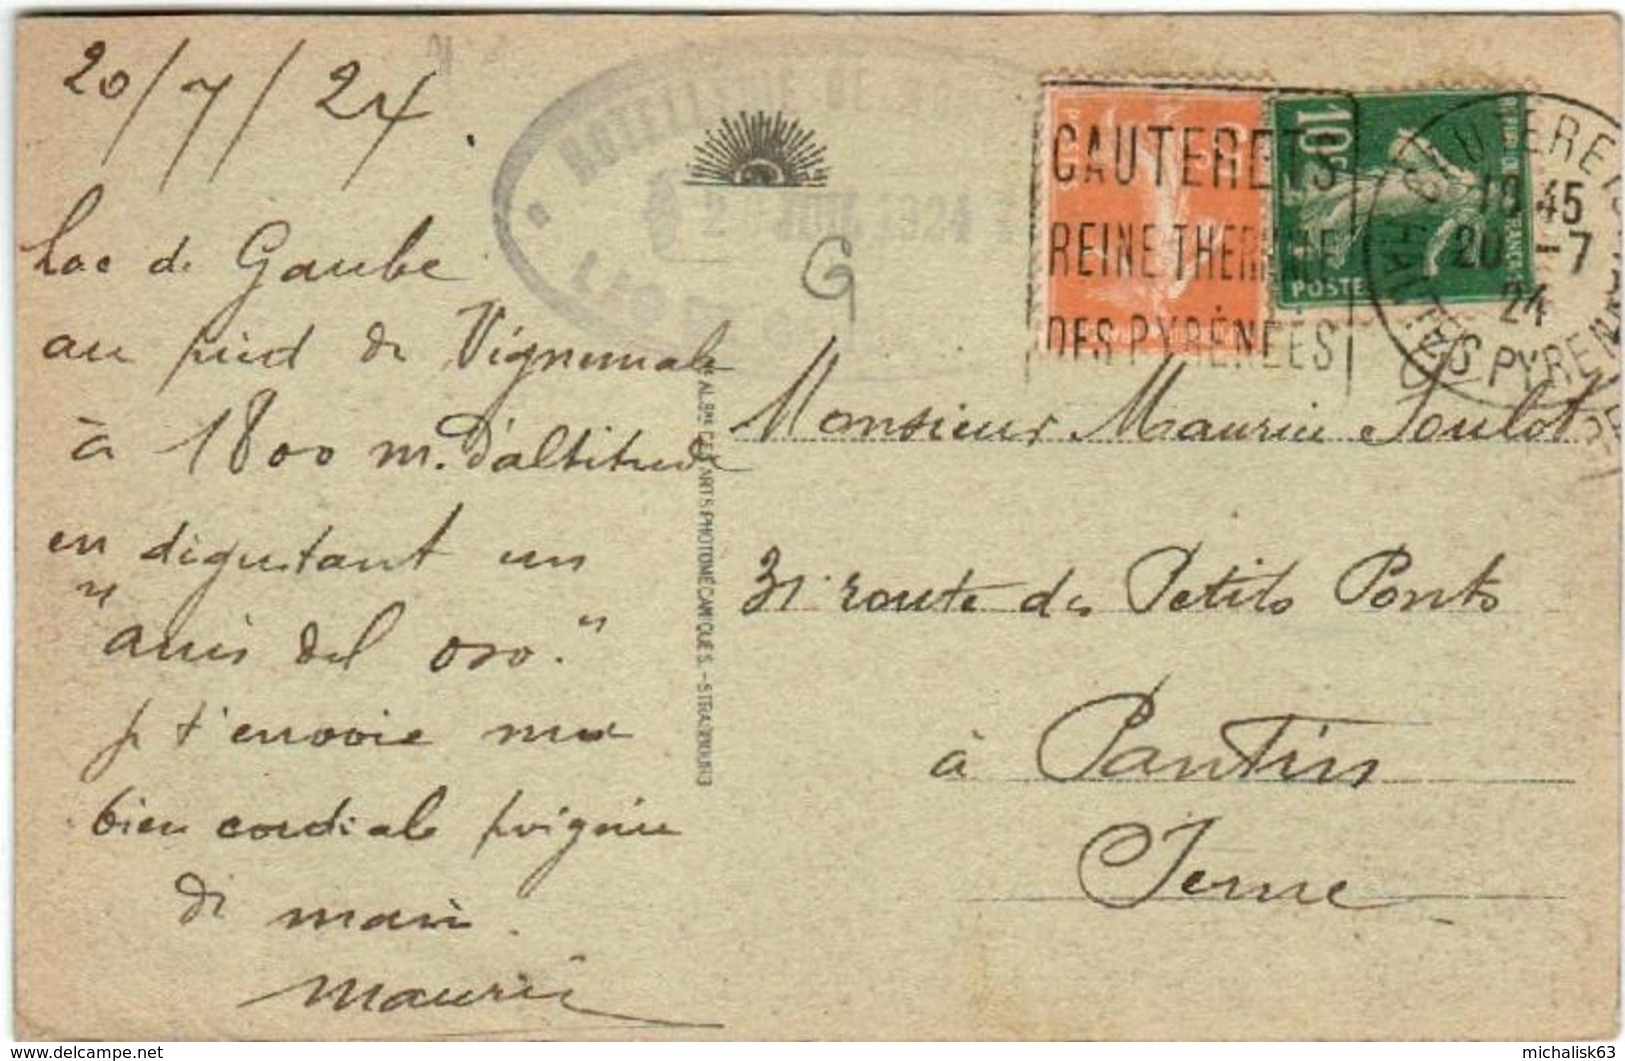 20/7/24.
Lac de Gaube
au pied de Vignemale
à 1800 m. d'altitude
en dégustant un
"anis del oso."
je t'envoie ma
bien cordiale poignée
de main.
Maurice
HOTELLERIE DE
2 JUIL 1924
G
CAUTERETS
REINE THERMALE
DES PYRÉNÉES
10c
POSTES
CAUTERETS
18 45
20 -7
24
HAUTES PYRENEES
ALSne DES ARTS PHOTOMÉCANIQUES. - STRASBOURG
Monsieur Maurice Soulot
31 route des Petits Ponts
à Pantin
Seine
www.delcampe.net
michalisk63